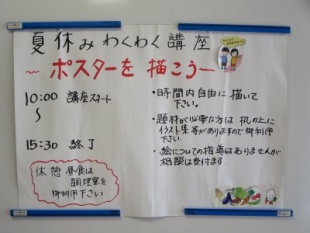 夏休みわくわく講座
～ポスターを描こう～
10:00 講座スタート
～
15:30 終了
休憩 昼食は
調理室を
御利用下さい
・時間内自由に描いて
下さい。
・題材が必要な方は机の上に
イラスト集等がありますので御利用
下さい。
・絵についての指導はありませんが
相談は受付ます。